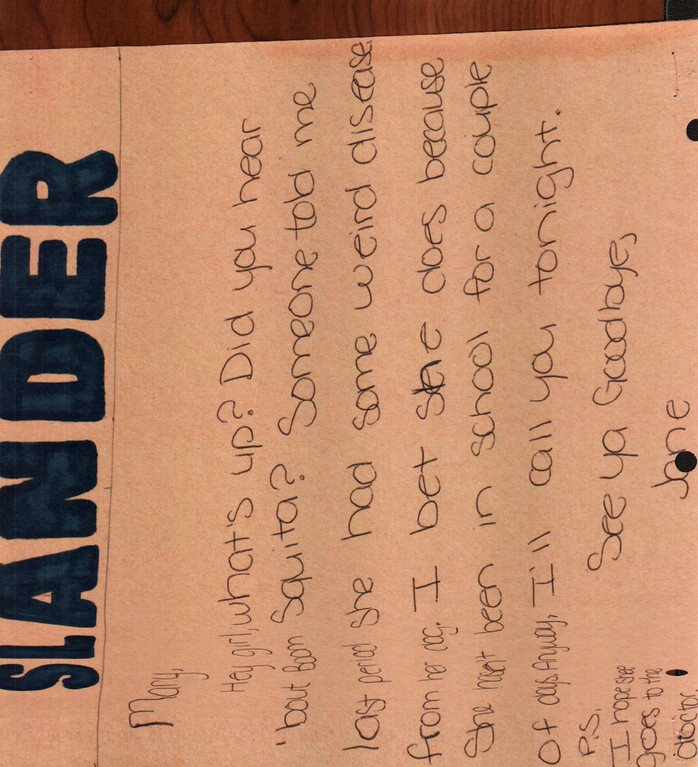 SLANDER
Mary,
Hey girl, what's up? Did you hear
'bout Boom Squita? Someone told me
last period she had some weird disease
from her dog. I bet she does because
She hasn't been in school for a couple
of days. Anyway, I'll call you tonight.
See ya Goodbye,
Jane
P.S.
I hope she
goes to the
doctor